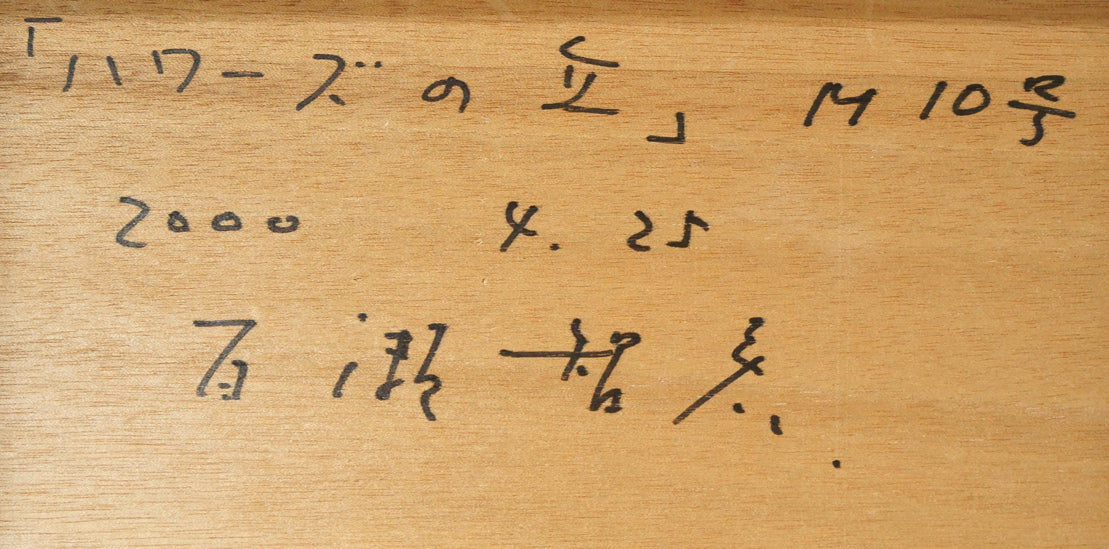 「ハワーズの丘」 M10号
2000 4.25
百瀬智宏